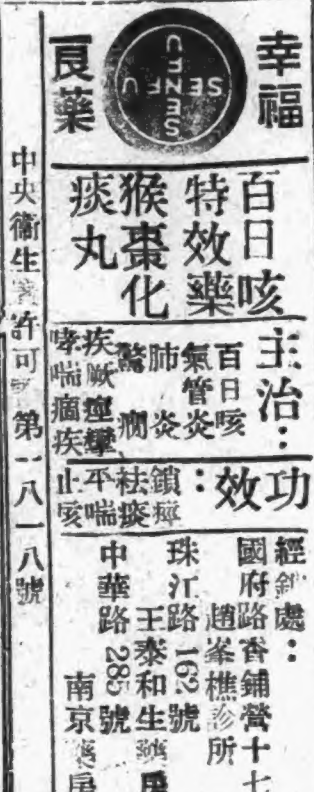 幸福
SENFU
SENFU
良藥
百日咳
特效藥
猴棗化
痰丸
主治：
百日咳
氣管炎
肺炎
驚癇
疾厥痙攣
哮喘痼疾
功效：
鎮痙
祛痰
平喘
止咳
經銷處：
國府路香鋪營十七
趙峯樵診所
珠江路162號
王泰和生藥房
中華路285號
南京藥房
中央衛生署許可證第一八一八號